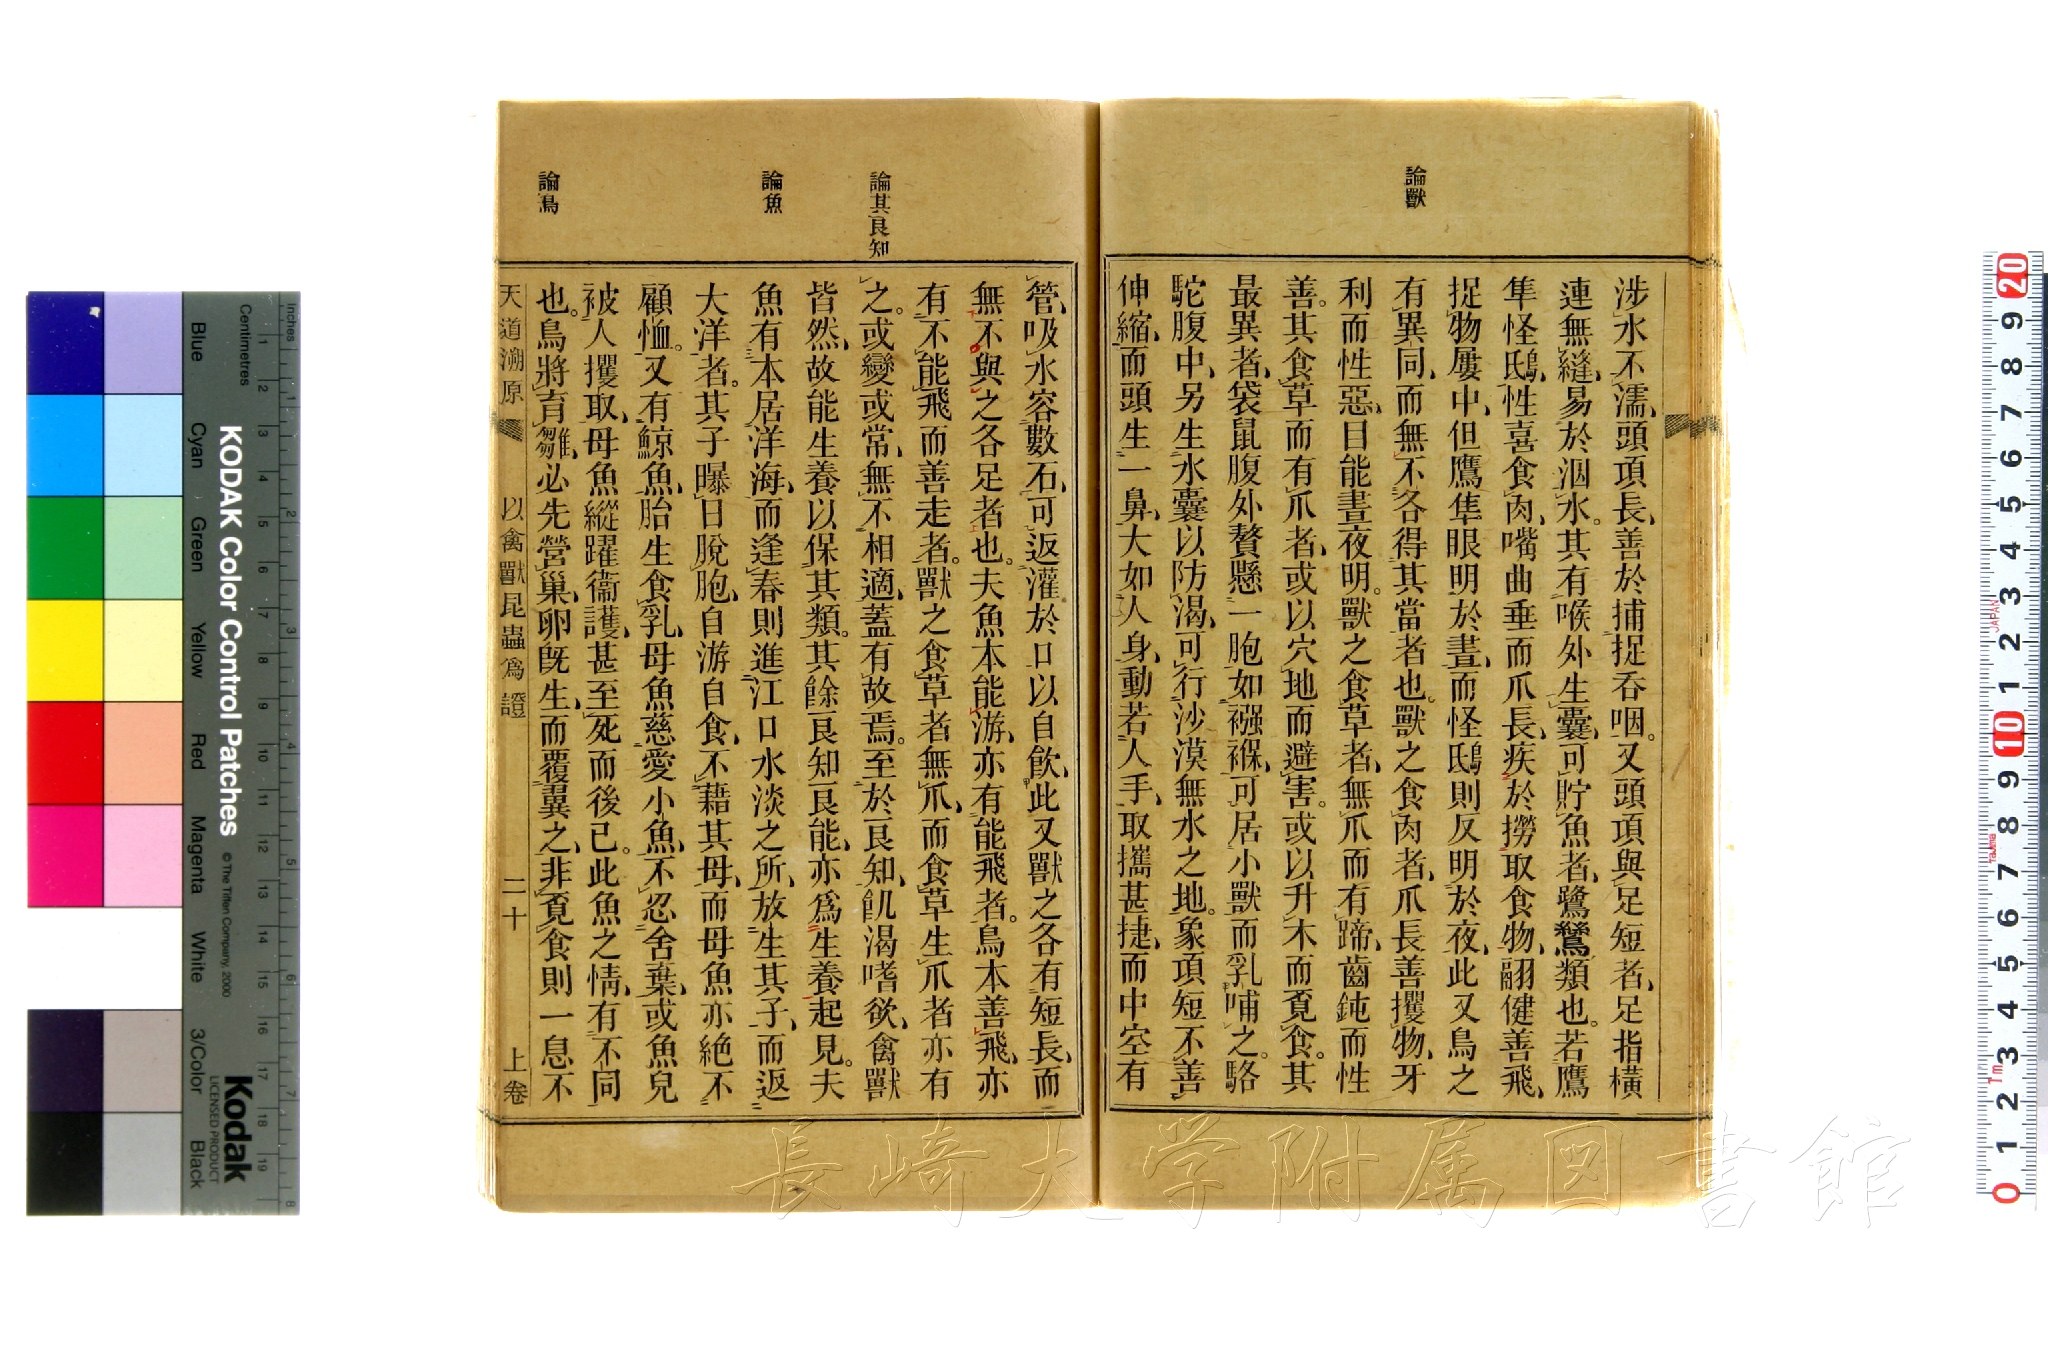 論獸
涉水不濡、頭項長、善於捕捉吞咽。又頭項與足短者、足指橫
連無縫、易於泅水。其有喉外生囊、可貯魚者、鷺鶿類也。若鷹
隼怪鴟、性喜食肉、嘴曲垂而爪長、疾於撈取食物、翮健善飛、
捉物屢中、但鷹隼眼明於晝、而怪鴟則反明於夜、此又鳥之
有異同、而無不各得其當者也。獸之食肉者、爪長善攫物、牙
利而性惡、目能晝夜明。獸之食草者、無爪而有蹄、齒鈍而性
善。其食草而有爪者、或以穴地而避害。或以升木而覓食。其
最異者、袋鼠腹外贅懸一胞如襁褓、可居小獸而乳哺之。駱
駝腹中、另生水囊以防渴、可行沙漠無水之地。象項短不善
伸縮、而頭生一鼻、大如人身、動若人手、取攜甚捷、而中空有
論其良知
論魚
論鳥
管、吸水容數石、可返灌於口以自飲、此又獸之各有短長、而
無不與之各足者也。夫魚本能游、亦有能飛者。鳥本善飛、亦
有不能飛而善走者。獸之食草者無爪、而食草生爪者亦有
之。或變或常、無不相適、蓋有故焉。至於良知、飢渴嗜欲、禽獸
皆然、故能生養以保其類。其餘良知良能、亦爲生養起見。夫
魚有本居洋海、而逢春則進江口水淡之所、放生其子、而返
大洋者。其子曝日脫胞、自游自食、不藉其母、而母魚亦絕不
顧恤。又有鯨魚、胎生食乳、母魚慈愛小魚、不忍舍棄、或魚兒
被人攫取、母魚縱躍衞護、甚至死而後已。此魚之情、有不同
也。鳥將育雛、必先營巢、卵旣生、而覆翼之、非覓食則一息不
天道溯原 以禽獸昆蟲爲證 二十 上卷
長崎大学附属図書館
KODAK Color Control Patches
© The Tiffen Company, 2000
Kodak
LICENSED PRODUCT
Inches
Centimetres
Blue
Cyan
Green
Yellow
Red
Magenta
White
3/Color
Black
1 2 3 4 5 6 7 8 9 10 11 12 13 14 15 16 17 18 19
1 2 3 4 5 6 7 8
20 9 8 7 6 5 4 3 2 1 10 9 8 7 6 5 4 3 2 1 0
JAPAN
Tajima
Tm